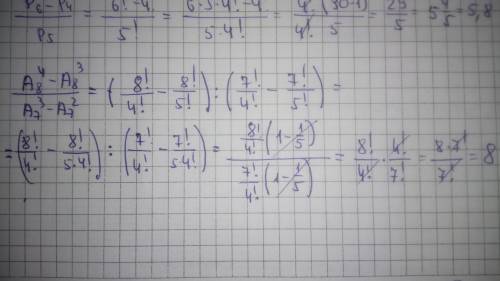 (P₆-P₄)/P₅ = (6!-4!)/5! = (6·5·4!-4!)/(5·4!) = 4!(30-1)/(4!·5) = 29/5 = 5 4/5 = 5,8
(A₈⁴-A₈³)/(A₇³-A₇²) = (8!/4! - 8!/5!) : (7!/4! - 7!/5!) =
= (8!/4! - 8!/(5·4!)) : (7!/4! - 7!/(5·4!)) = (8!/4! (1-1/5))/(7!/4! (1-1/5)) = 8!/4! · 4!/7! = 8·7!/7! = 8